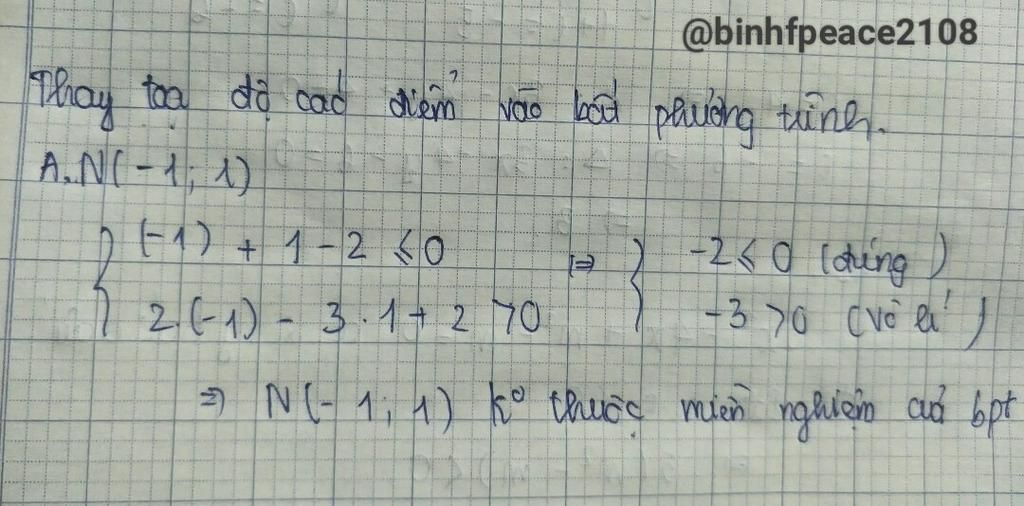 @binhfpeace2108
Thay tọa độ các điểm vào bất phương trình.
A. N(-1; 1)
{ (-1) + 1 - 2 ≤ 0 ⇒ { -2 ≤ 0 (đúng)
2.(-1) - 3 . 1 + 2 > 0 -3 > 0 (vô lí)
⇒ N(-1; 1) k° thuộc miền nghiệm của bpt